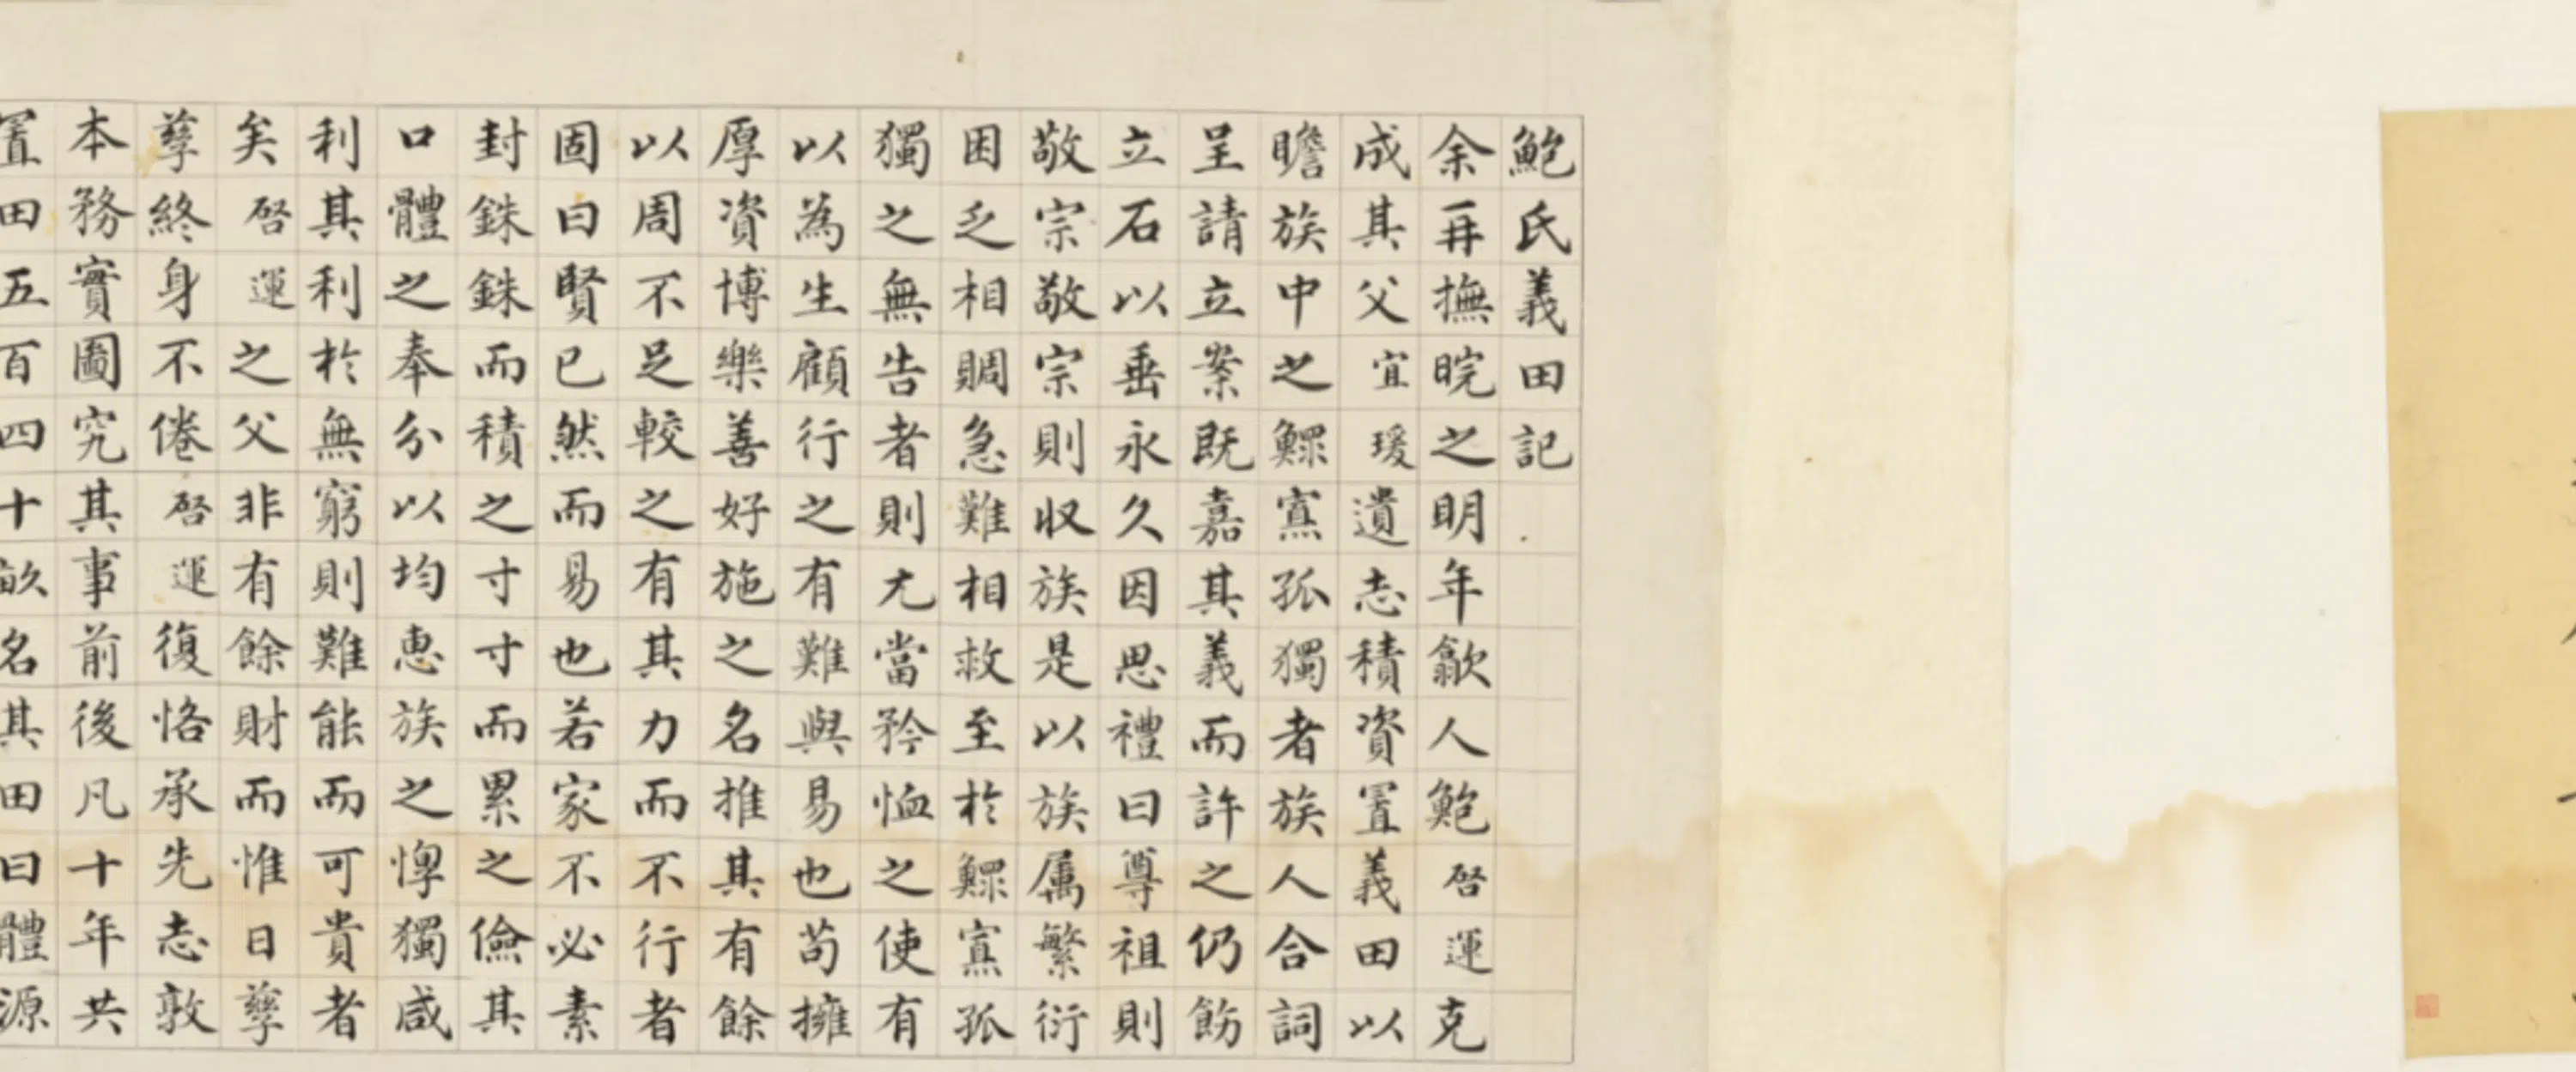 鮑氏義田記
余再撫晥之明年歙人鮑啓運克
成其父宜瑗遺志積資置義田以
瞻族中之鰥寡孤獨者族人合詞
呈請立案既嘉其義而許之仍飭
立石以垂永久因思禮曰尊祖則
敬宗敬宗則收族是以族属繁衍
困乏相賙急難相救至於鰥寡孤
獨之無告者則尤當矜恤之使有
以為生顧行之有難與易也苟擁
厚資博樂善好施之名推其有餘
以周不足較之有其力而不行者
固曰賢已然而易也若家不必素
封銖銖而積之寸寸而累之儉其
口體之奉分以均惠族之惸獨咸
利其利於無窮則難能而可貴者
矣啓運之父非有餘財而惟日孳
孳終身不倦啓運復恪承先志敦
本務實圖究其事前後凡十年共
置田五百四十畝名其田曰體源